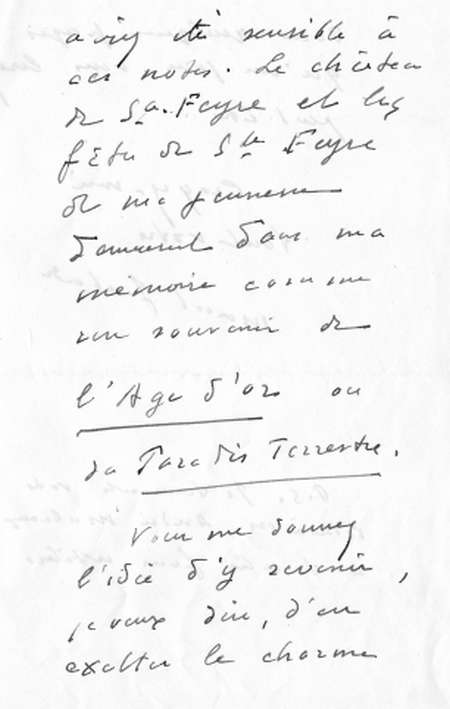 avez été sensible à
ces notes. Le château
de Ste. Feyre et les
fêtes de Ste Feyre
de ma jeunesse
demeurent dans ma
mémoire comme
un souvenir de
l'Age d'or ou
du Paradis Terrestre.
Vous me donnez
l'idée d'y revenir,
je veux dire, d'en
exalter le charme